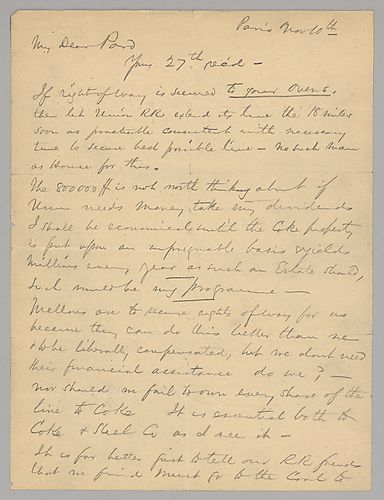 Paris Nov 10th
My Dear Pard
Yours 27th recd -
If right of way is secured to your Ovens,
then let Union RR extend its line the 18 miles
soon as practicable consistent with necessary
time to secure best possible line - no such man
as House for this.
The 800000 ff is not worth thinking about if
Union needs money, take my dividends
I shall be economical until the Coke property
is put upon an impregnable basis yields
Millions every year as such an Estate should,
Such must be my Programme -
Mellons are to secure rights of way for us
because they can do this better than we
& to be liberally compensated, but we dont need
their financial assistance do we? -
nor should we fail to own every share of the
line to Coke It is essential both to
Coke & Steel Co as I see it -
It is far better just to tell our RR friends
that we find must go to the Coal to